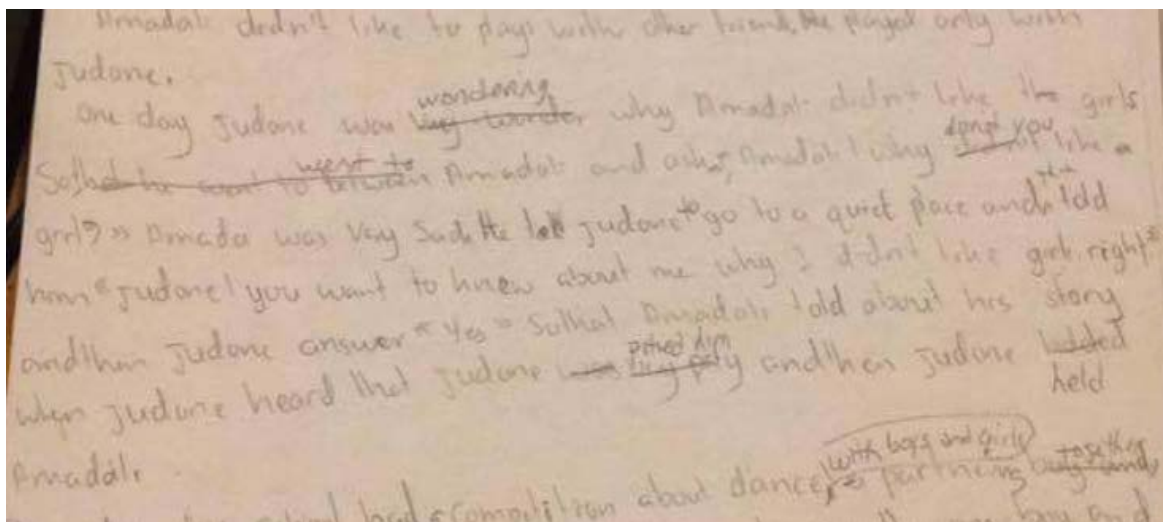 Amadali dedn't like to pays with other friend, He played only with
Judone.
one day Judone was very wonder wondering why Amadali didn't like the girls
Sothat he went to went to between Amadali and ask, "Amadali! why don't you like a
girl? » Amada was very Sad. He led Judone to go to a quiet place and told
him « Judone! you want to knew about me why I didn't like girl, right?
andthen Judone answer « Yes » Sothat Amadali told about his story
when Judone heard that Judone was pitied him andthen Judone held
Amadali.
had a compitition about dance, with boys and girls partning together